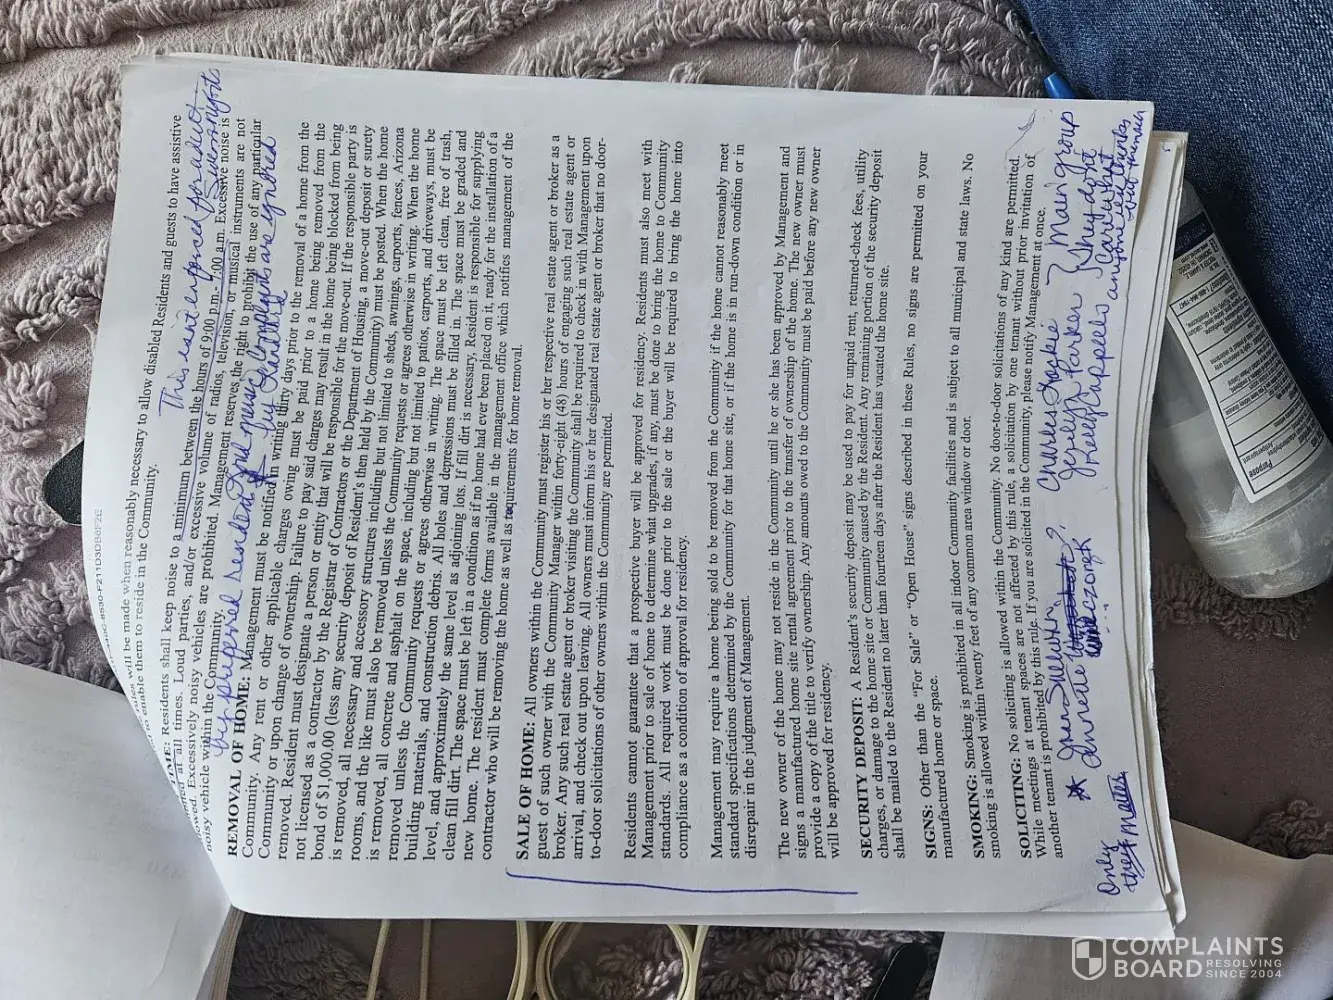 will be made when reasonably necessary to allow disabled Residents and guests to have assistive
to enable them to reside in the Community.
This isn't enforced
Residents shall keep noise to a minimum between the hours of 9:00 p.m. - 7:00 a.m. Excessive noise is
at all times. Loud parties, and/or excessive volume of radios, television, or musical instruments are not
allowed. Excessively noisy vehicles are prohibited. Management reserves the right to prohibit the use of any particular
noisy vehicle within the Community.
noise Complaints are ignored
by
REMOVAL OF HOME: Management must be notified in writing thirty days prior to the removal of a home from the
Community. Any rent or other applicable charges owing must be paid prior to a home being removed from the
Community or upon change of ownership. Failure to pay said charges may result in the home being blocked from being
removed. Resident must designate a person or entity that will be responsible for the move-out. If the responsible party is
not licensed as a contractor by the Registrar of Contractors or the Department of Housing, a move-out deposit or surety
bond of $1,000.00 (less any security deposit of Resident's then held by the Community) must be posted. When the home
is removed, all necessary and accessory structures including but not limited to sheds, awnings, carports, fences, Arizona
rooms, and the like must also be removed unless the Community requests or agrees otherwise in writing. When the home
is removed, all concrete and asphalt on the space, including but not limited to patios, carports, and driveways, must be
removed unless the Community requests or agrees otherwise in writing. The space must be left clean, free of trash,
building materials, and construction debris. All holes and depressions must be filled in. The space must be graded and
level, and approximately the same level as adjoining lots. If fill dirt is necessary, Resident is responsible for supplying
clean fill dirt. The space must be left in a condition as if no home had ever been placed on it, ready for the installation of a
new home. The resident must complete forms available in the management office which notifies management of the
contractor who will be removing the home as well as requirements for home removal.
SALE OF HOME: All owners within the Community must register his or her respective real estate agent or broker as a
guest of such owner with the Community Manager within forty-eight (48) hours of engaging such real estate agent or
broker. Any such real estate agent or broker visiting the Community shall be required to check in with Management upon
arrival, and check out upon leaving. All owners must inform his or her designated real estate agent or broker that no door-
to-door solicitations of other owners within the Community are permitted.
Residents cannot guarantee that a prospective buyer will be approved for residency. Residents must also meet with
Management prior to sale of home to determine what upgrades, if any, must be done to bring the home to Community
standards. All required work must be done prior to the sale or the buyer will be required to bring the home into
compliance as a condition of approval for residency.
Management may require a home being sold to be removed from the Community if the home cannot reasonably meet
standard specifications determined by the Community for that home site, or if the home is in run-down condition or in
disrepair in the judgment of Management.
The new owner of the home may not reside in the Community until he or she has been approved by Management and
signs a manufactured home site rental agreement prior to the transfer of ownership of the home. The new owner must
provide a copy of the title to verify ownership. Any amounts owed to the Community must be paid before any new owner
will be approved for residency.
SECURITY DEPOSIT: A Resident's security deposit may be used to pay for unpaid rent, returned-check fees, utility
charges, or damage to the home site or Community caused by the Resident. Any remaining portion of the security deposit
shall be mailed to the Resident no later than fourteen days after the Resident has vacated the home site.
SIGNS: Other than the "For Sale" or "Open House" signs described in these Rules, no signs are permitted on your
manufactured home or space.
SMOKING: Smoking is prohibited in all indoor Community facilities and is subject to all municipal and state laws. No
smoking is allowed within twenty feet of any common area window or door.
SOLICITING: No soliciting is allowed within the Community. No door-to-door solicitations of any kind are permitted.
While meetings at tenant spaces are not affected by this rule, a solicitation by one tenant without prior invitation of
another tenant is prohibited by this rule. If you are solicited in the Community, please notify Management at once.
Charles
Main group
Annette
Parker
They don't
Care what
Only
anyone else thinks
matter
COMPLAINTS
BOARD RESOLVING
SINCE 2004